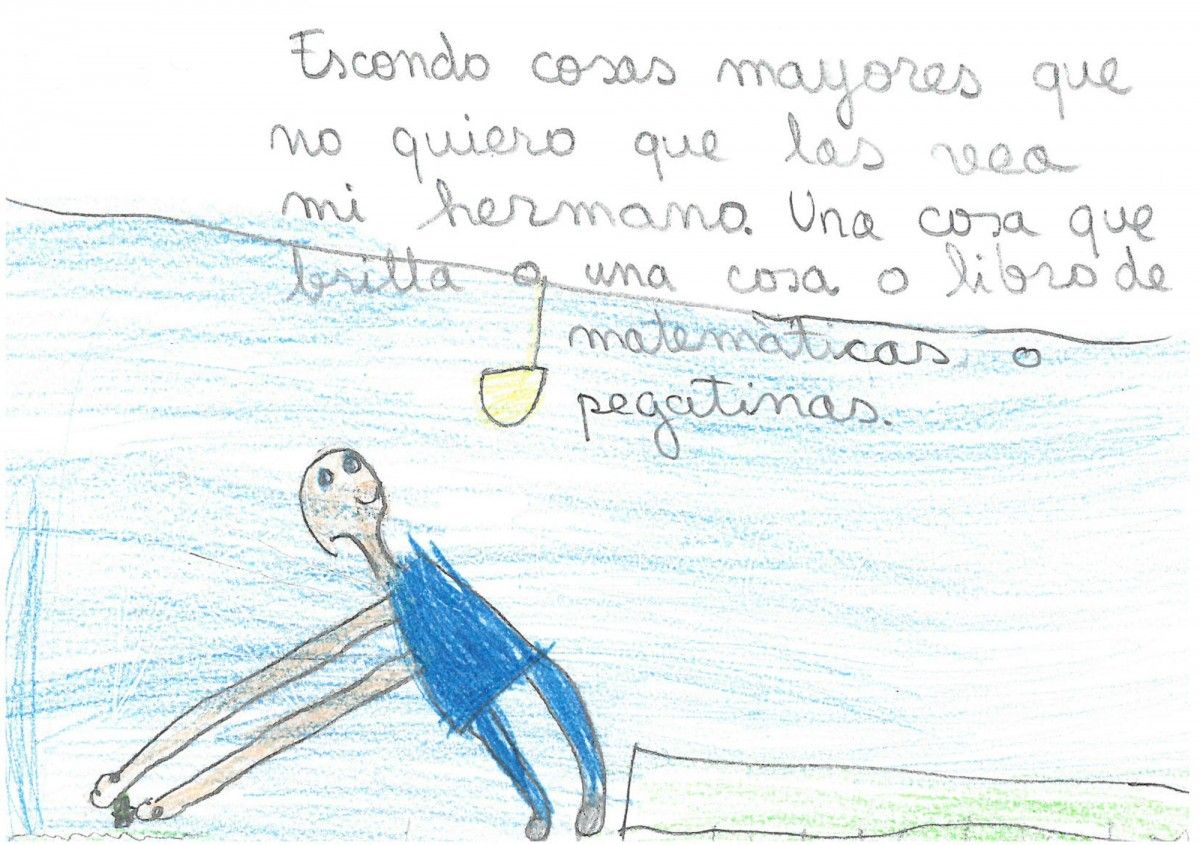 Escondo cosas mayores que
no quiero que las vea
mi hermano. Una cosa que
brilla o una cosa o libro de
matemàticas o
pegatinas.